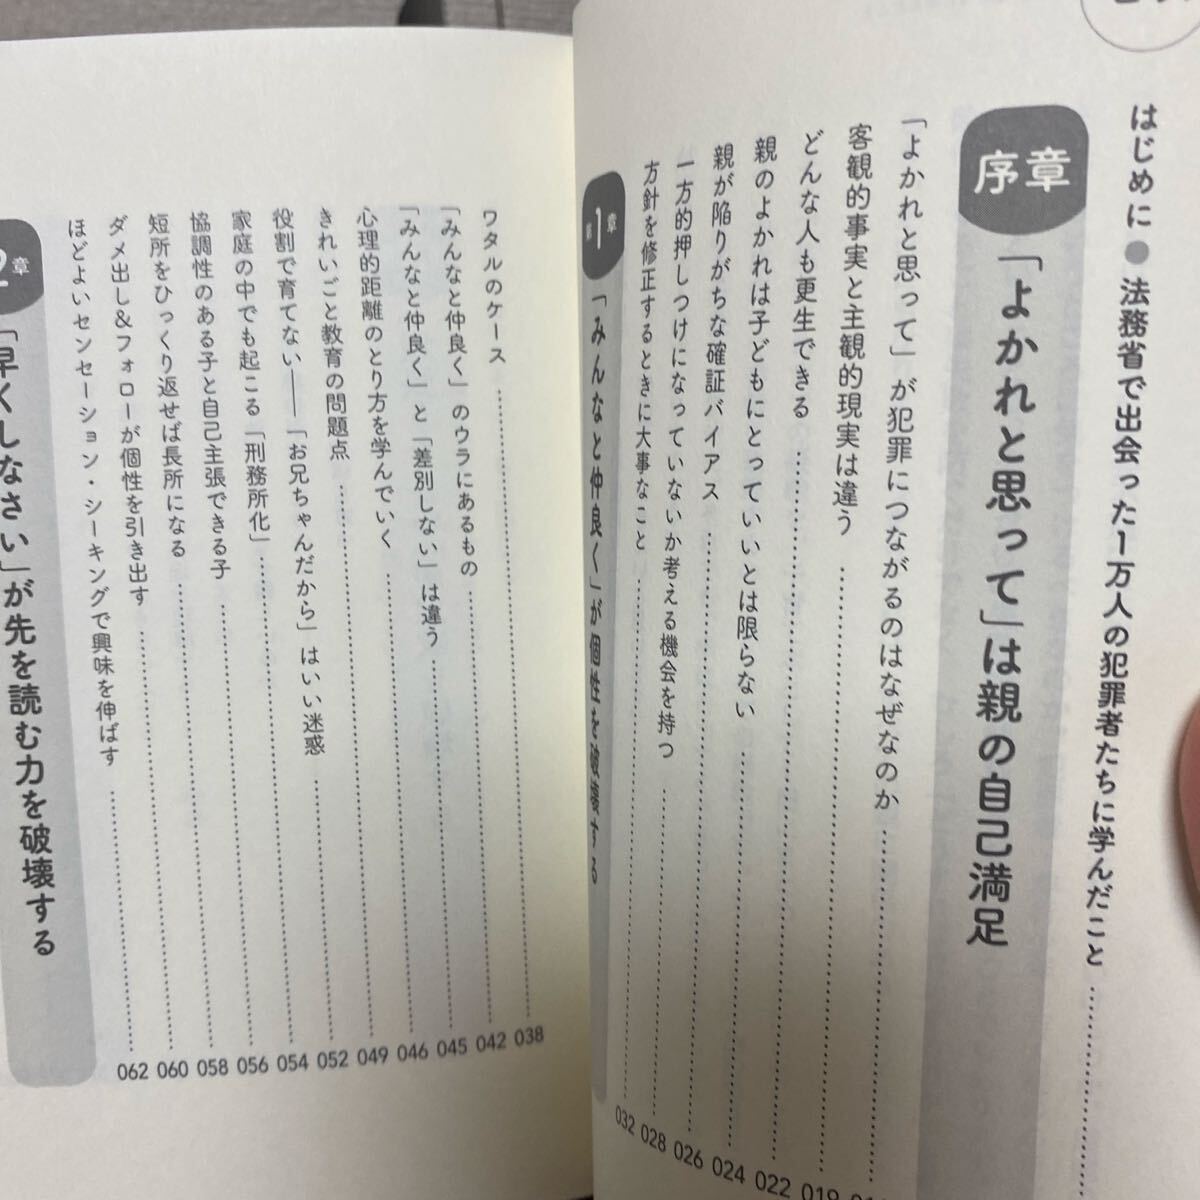 はじめに●法務省で出会った1万人の犯罪者たちに学んだこと
序章 「よかれと思って」は親の自己満足
「よかれと思って」が犯罪につながるのはなぜなのか
客観的事実と主観的現実は違う 019
どんな人も更生できる 022
親のよかれは子どもにとっていいとは限らない 024
親が陥りがちな確証バイアス 026
一方的押しつけになっていないか考える機会を持つ 028
方針を修正するときに大事なこと 032
第1章 「みんなと仲良く」が個性を破壊する
ワタルのケース 038
「みんなと仲良く」のウラにあるもの 042
「みんなと仲良く」と「差別しない」は違う 045
心理的距離のとり方を学んでいく 046
きれいごと教育の問題点 049
役割で育てない――「お兄ちゃんだから」はいい迷惑 052
家庭の中でも起こる「刑務所化」 054
協調性のある子と自己主張できる子 056
短所をひっくり返せば長所になる 058
ダメ出し&フォローが個性を引き出す 060
ほどよいセンセーション・シーキングで興味を伸ばす 062
2章 「早くしなさい」が先を読む力を破壊する